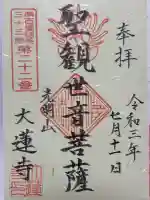 奉拝
令和三年
七月十一日
聖観世音菩薩
光明山
三十三番
第二十二番
大蓮寺